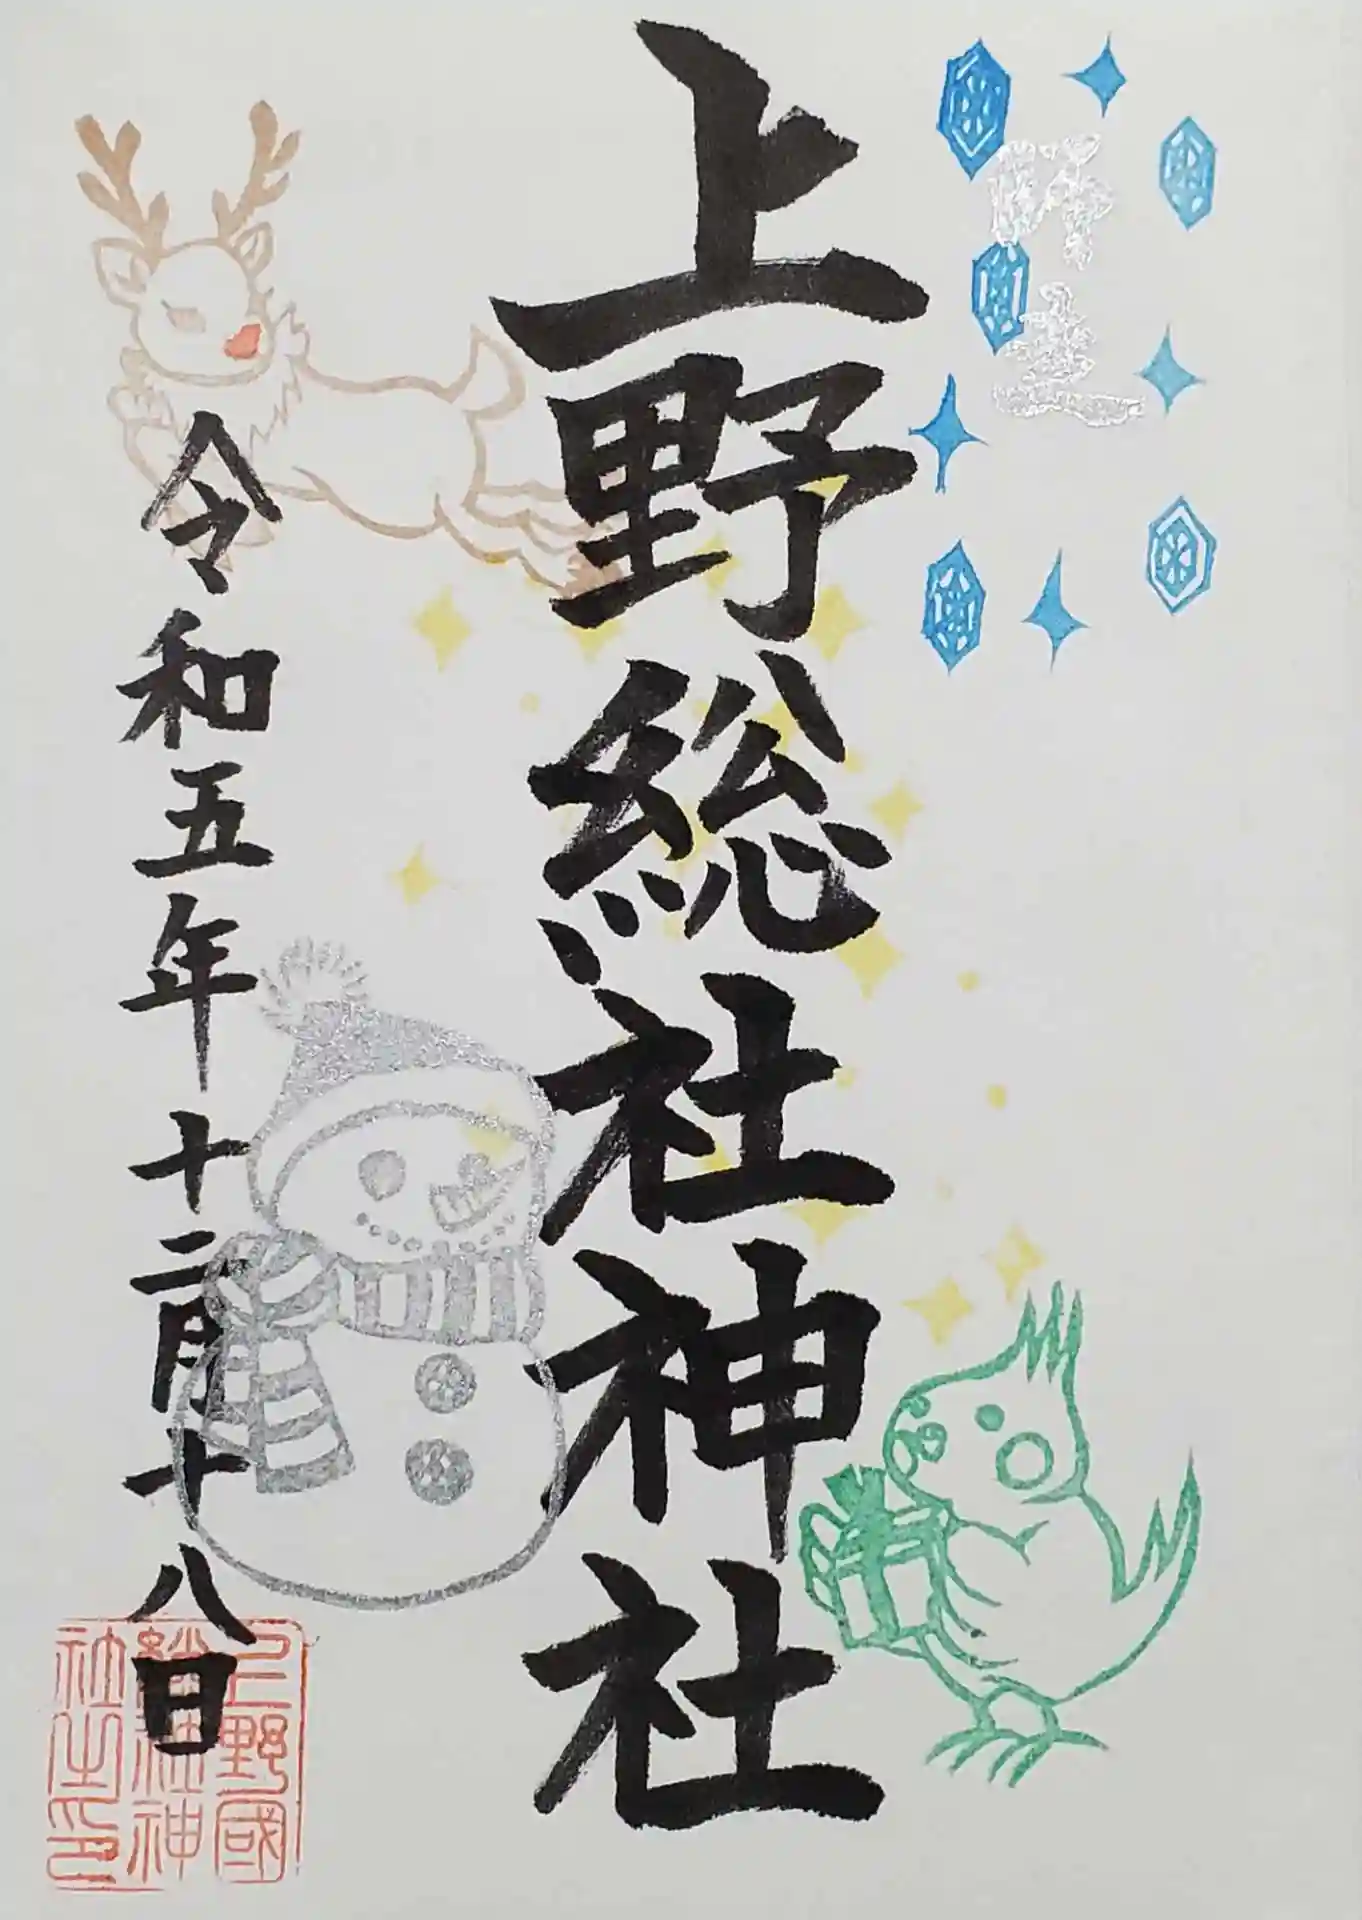 師走
上野総社神社
令和五年十二月十八日
上野國
総社神
社之印